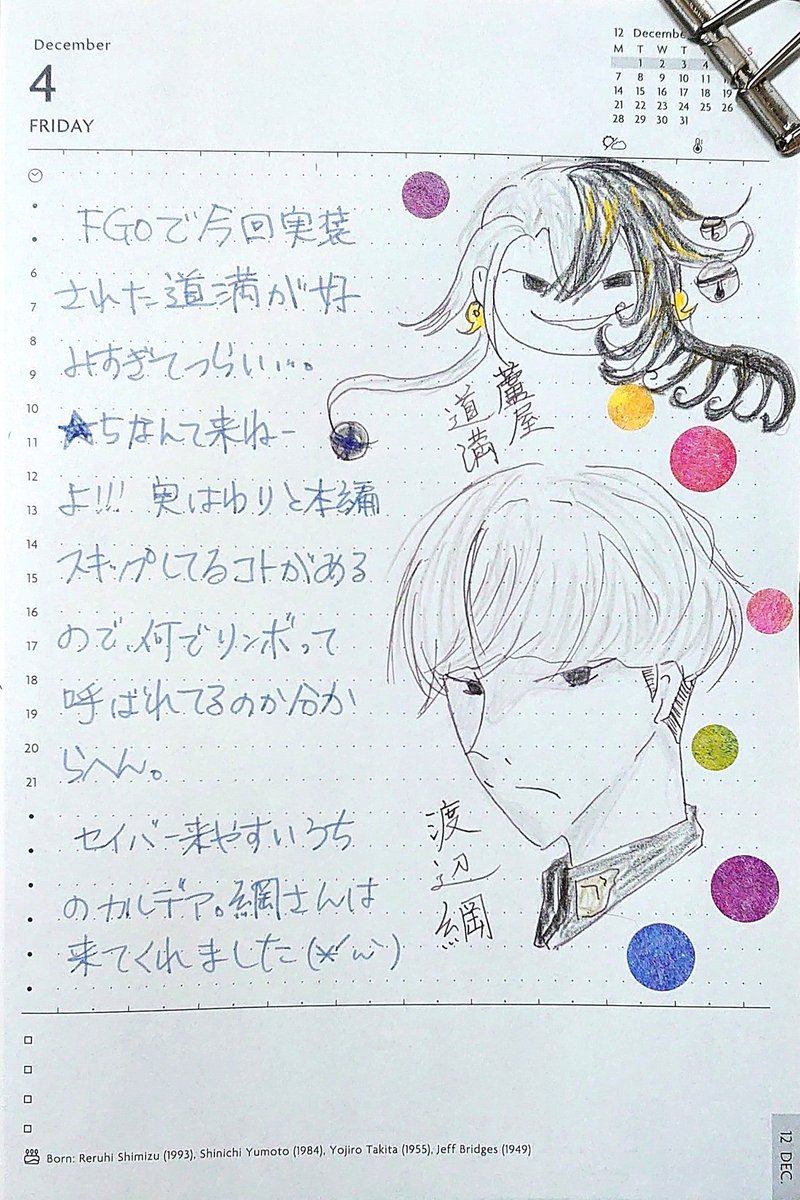 December
4
FRIDAY
12 December
M T W T S
1 2 3 4
7 8 9 10 11
14 15 16 17 18 19
21 22 23 24 25 26
28 29 30 31
FGOで今回実装
された道満が好
みすぎてつらい…。
★5なんて来ねー
よ!!! 実はわりと本編
スキップしてるコトがある
ので、何でリンボって
呼ばれてるのか分か
らへん。
セイバー来やすいうち
のカルデア。綱さんは
来てくれました(*´ω`)
蘆屋
道満
渡辺綱
6
7
8
9
10
11
12
13
14
15
16
17
18
19
20
21
Born: Reruhi Shimizu (1993), Shinichi Yumoto (1984), Yojiro Takita (1955), Jeff Bridges (1949)
12 DEC.